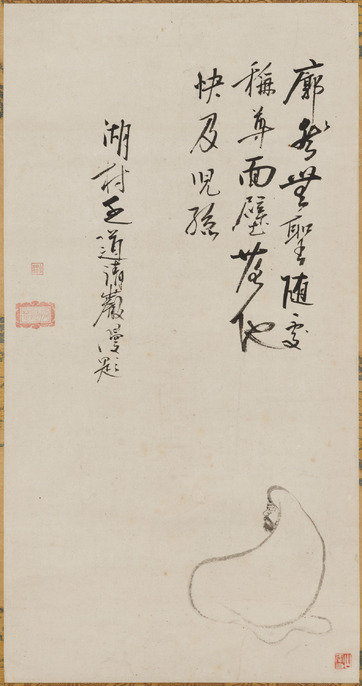 廓然無聖随處
稱尊面壁他
殃及児孫
湖村道清巖漫題